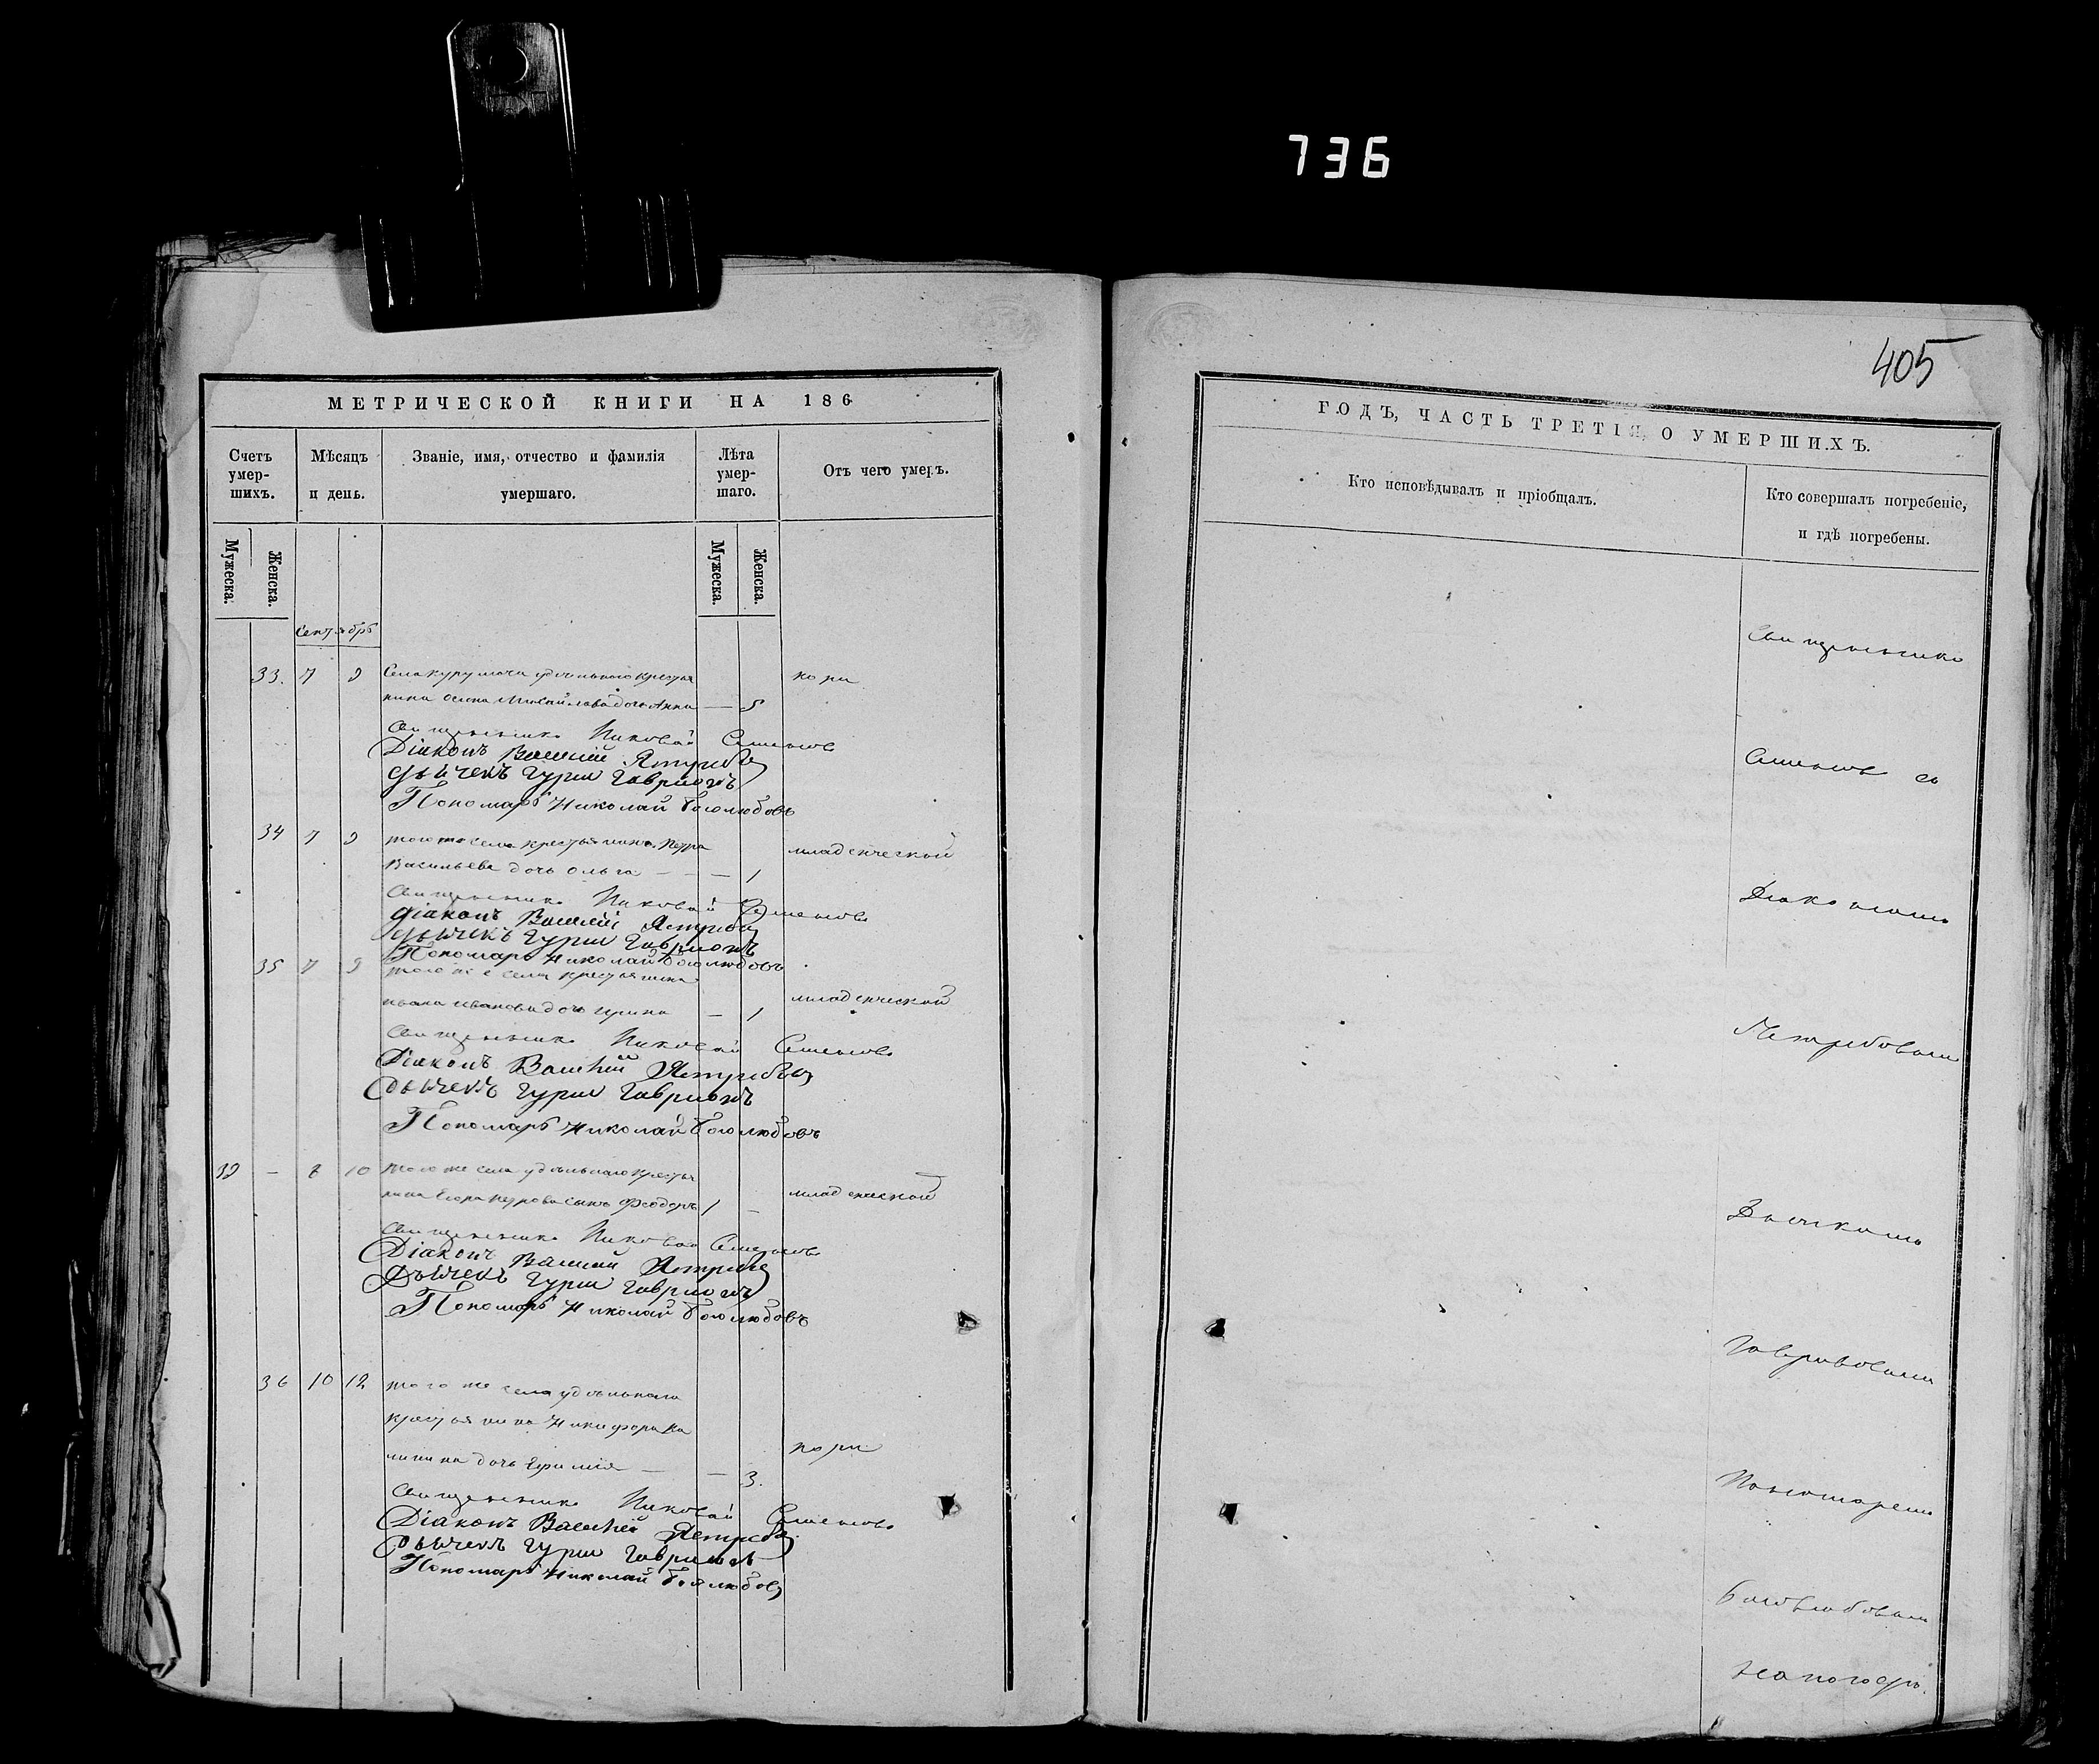 736
405
МЕТРИЧЕСКОЙ КНИГИ НА 186
Счетъ умер-шихъ.
Мѣсяцъ и день.
Званіе, имя, отчество и фамилія умершаго.
Лѣта умер-шаго.
Отъ чего умеръ.
Мужеска.
Женска.
Мужеска.
Женска.
Сентябрь
33. 7 9 Села Курумочи удѣльнаго крестья
кори
нина Осипа Михайлова дочь Анна — 5
Священникъ Николай Семеновъ
Діаконъ Василій Ястребовъ
Дьячекъ Гурій Гавриловъ
Пономарь Николай Боголюбовъ
34 7 9 того же села крестьянина Петра
младенческой
Васильева дочь Ольга — — — 1
Священникъ Николай Семеновъ
Діаконъ Василій Ястребовъ
Дьячекъ Гурій Гавриловъ
Пономарь Николай Боголюбовъ
35 7 9 того же села крестьянина
младенческой
Ивана Иванова дочь Ирина — 1
Священникъ Николай Семеновъ
Діаконъ Василій Ястребовъ
Дьячекъ Гурій Гавриловъ
Пономарь Николай Боголюбовъ
39 — 8 10 того же села удѣльнаго крестья
младенческой
нина Егора Петрова сынъ Феодоръ 1 —
Священникъ Николай Семеновъ
Діаконъ Василій Ястребовъ
Дьячекъ Гурій Гавриловъ
Пономарь Николай Боголюбовъ
36 10 12 того же села удѣльнаго
крестьянина Никифора Ка
кори
линина дочь Ефимія — — 3.
Священникъ Николай Семеновъ
Діаконъ Василій Ястребовъ
Дьячекъ Гурій Гавриловъ
Пономарь Николай Боголюбовъ
ГОДЪ, ЧАСТЬ ТРЕТІЯ, О УМЕРШИХЪ.
Кто исповѣдывалъ и пріобщалъ.
Кто совершалъ погребеніе, и гдѣ погребены.
Священникъ
Семеновъ съ
Діакономъ
Ястребовымъ
Дьячкомъ
Гавриловымъ
Пономаремъ
Боголюбовымъ
на погостѣ.